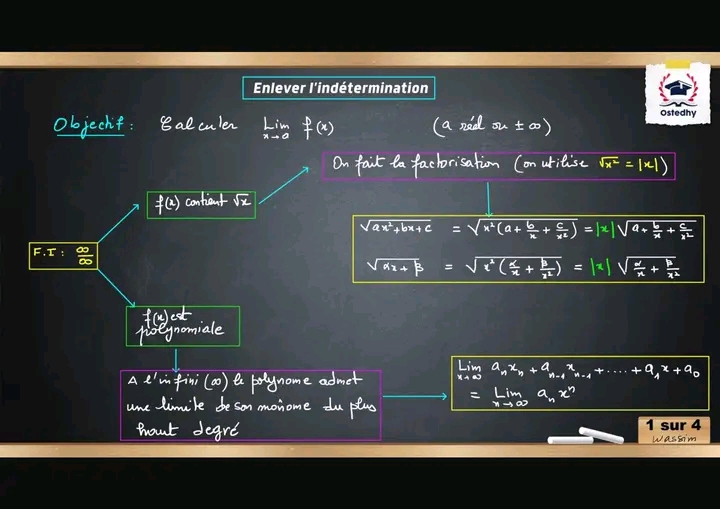 Enlever l'indétermination
Ostedhy
Objectif : Calculer Lim f(x) (a réel ou ± ∞)
x→a
On fait la factorisation (on utilise √x² = |x|)
f(x) contient √x
√ax²+bx+c = √x²(a + b/x + c/x²) = |x| √a + b/x + c/x²
√αx + β = √x²(α/x + β/x²) = |x| √α/x + β/x²
F.I : ∞/∞
f(x) est
polynomiale
A l'infini (∞) le polynome admet
une limite de son monôme du plus
haut degré
Lim aₙxₙ + aₙ₋₁xₙ₋₁ + .... + a₁x + a₀
x→∞
= Lim aₙxⁿ
x→∞
1 sur 4
Wassim